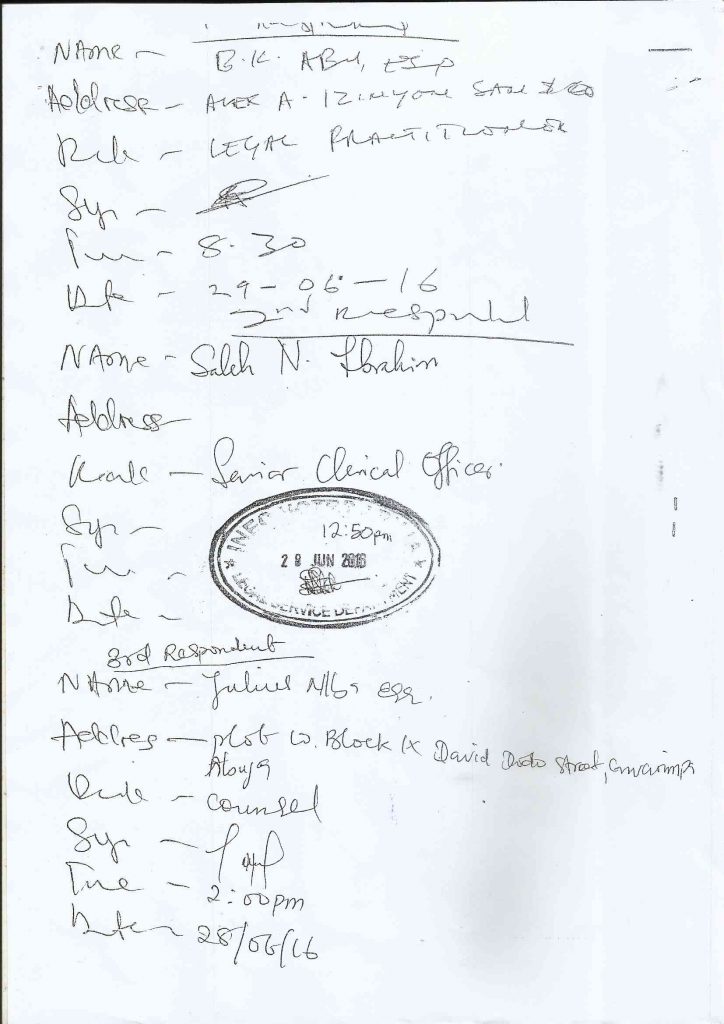 NAme - B.K. ABU, ESQ
Address - ALEX A. IZINYON SAN & CO
Rank - LEGAL PRACTITIONER
Sign -
Time - 8.30
Date - 29-06-16
2nd Respondent
NAme - Saleh N. Ibrahim
Address
Rank - Senior Clerical Officer.
Sign -
12:50pm
28 JUN 2016
LEGAL SERVICE DEPARTMENT
Time -
Date -
3rd Respondent
NAme - Julius Esq.
Address - plot 10. Block IX David Dodo Street, Gwarimpa
Abuja
Rank - counsel
Sign -
Time - 2:00pm
Date - 28/06/16